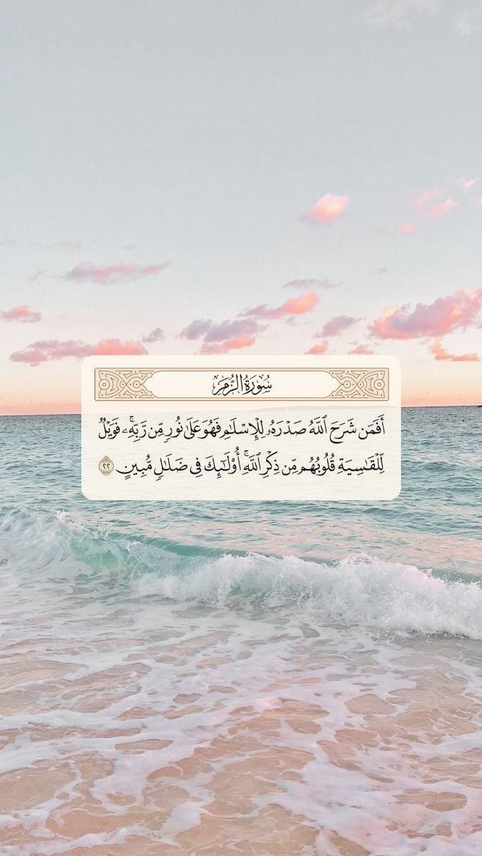 سُورَةُ الزُّمَر
أَفَمَن شَرَحَ ٱللَّهُ صَدْرَهُۥ لِلْإِسْلَـٰمِ فَهُوَ عَلَىٰ نُورٍ مِّن رَّبِّهِۦ ۚ فَوَيْلٌ
لِّلْقَـٰسِيَةِ قُلُوبُهُم مِّن ذِكْرِ ٱللَّهِ ۚ أُو۟لَـٰٓئِكَ فِى ضَلَـٰلٍ مُّبِينٍ ٢٢